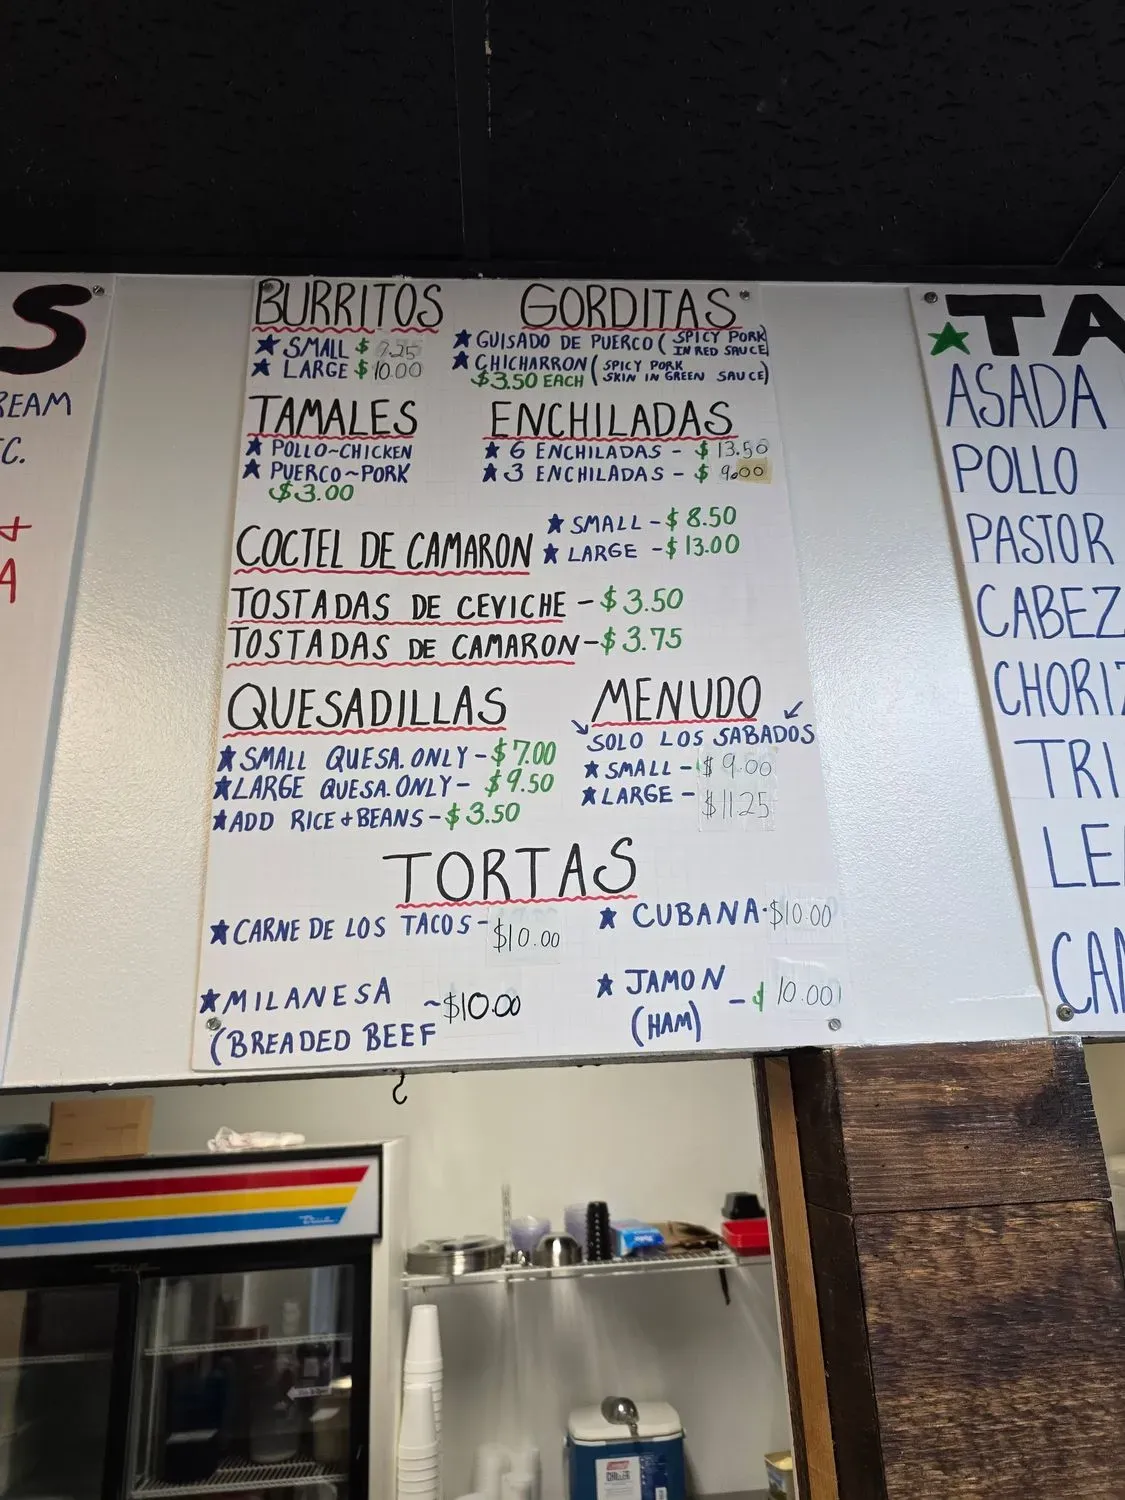 S
REAM
TC.
+
A
BURRITOS
★ SMALL $ 9.25
★ LARGE $ 10.00
GORDITAS
★ GUISADO DE PUERCO ( SPICY PORK
IN RED SAUCE)
★ CHICHARRON ( SPICY PORK
SKIN IN GREEN SAUCE)
$3.50 EACH
TAMALES
★ POLLO~CHICKEN
★ PUERCO~PORK
$3.00
ENCHILADAS
★ 6 ENCHILADAS - $ 13.50
★ 3 ENCHILADAS - $ 9.00
COCTEL DE CAMARON
★ SMALL - $ 8.50
★ LARGE - $ 13.00
TOSTADAS DE CEVICHE - $ 3.50
TOSTADAS DE CAMARON - $ 3.75
QUESADILLAS
★ SMALL QUESA. ONLY - $ 7.00
★ LARGE QUESA. ONLY - $ 9.50
★ ADD RICE + BEANS - $ 3.50
MENUDO
SOLO LOS SABADOS
★ SMALL - $ 9.00
★ LARGE - $11.25
TORTAS
★ CARNE DE LOS TACOS - $10.00
★ CUBANA - $10.00
★ MILANESA ~ $10.00
(BREADED BEEF
★ JAMON - $ 10.00
(HAM)
★ TA
ASADA
POLLO
PASTOR
CABEZ
CHORIZ
TRI
LE
CA
True
Coleman
CHILLER